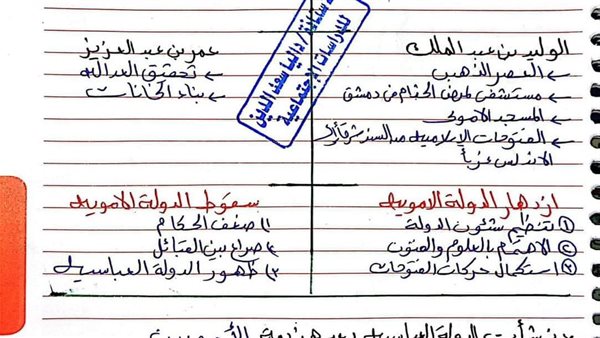 الوليد بن عبد الملك
← العصر الذهبى
← مستشفى لمرض الجذام فى دمشق
المسجد الأموى
← الفتوحات الإسلامية من السند شرقاً إلى
الاندلس غرباً
عمر بن عبد العزيز
← تحقيق العدالة
← بناء الخانات
داليا سعد الدين
للدراسات الإجتماعية
ازدهار الدولة الاموية
١ تنظيم شئون الدولة
٢ الاهتمام بالعلوم والفنون
٣ استكمال حركات الفتوحات
سقوط الدولة الاموية
١) ضعف الحكام
٢) صراع بين القبائل
٣) ظهور الدولة العباسية